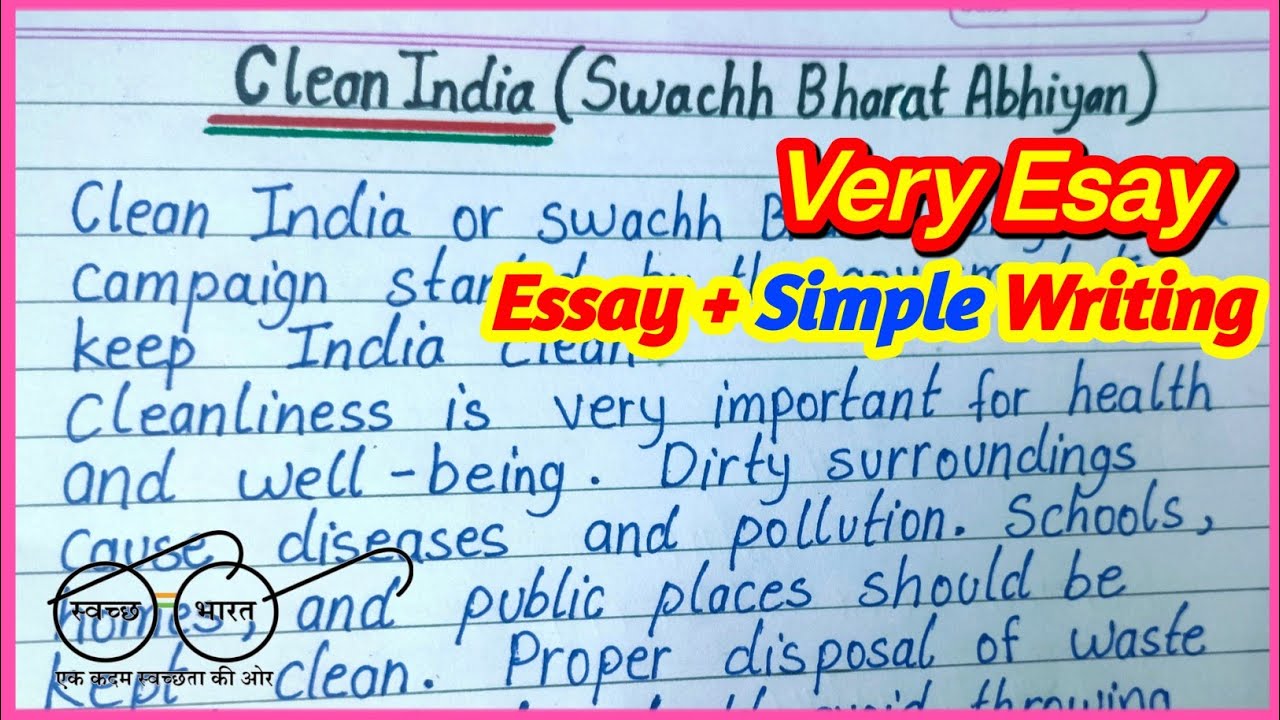 Clean India (Swachh Bharat Abhiyan)
Very Esay
Essay + Simple Writing
Clean India or swachh
campaign
keep India clean
Cleanliness is very important for health
and well-being. Dirty surroundings
cause diseases and pollution. Schools,
homes, and public places should be
kept clean. Proper disposal of waste
avoid throwing
स्वच्छ भारत
एक कदम स्वच्छता की ओर